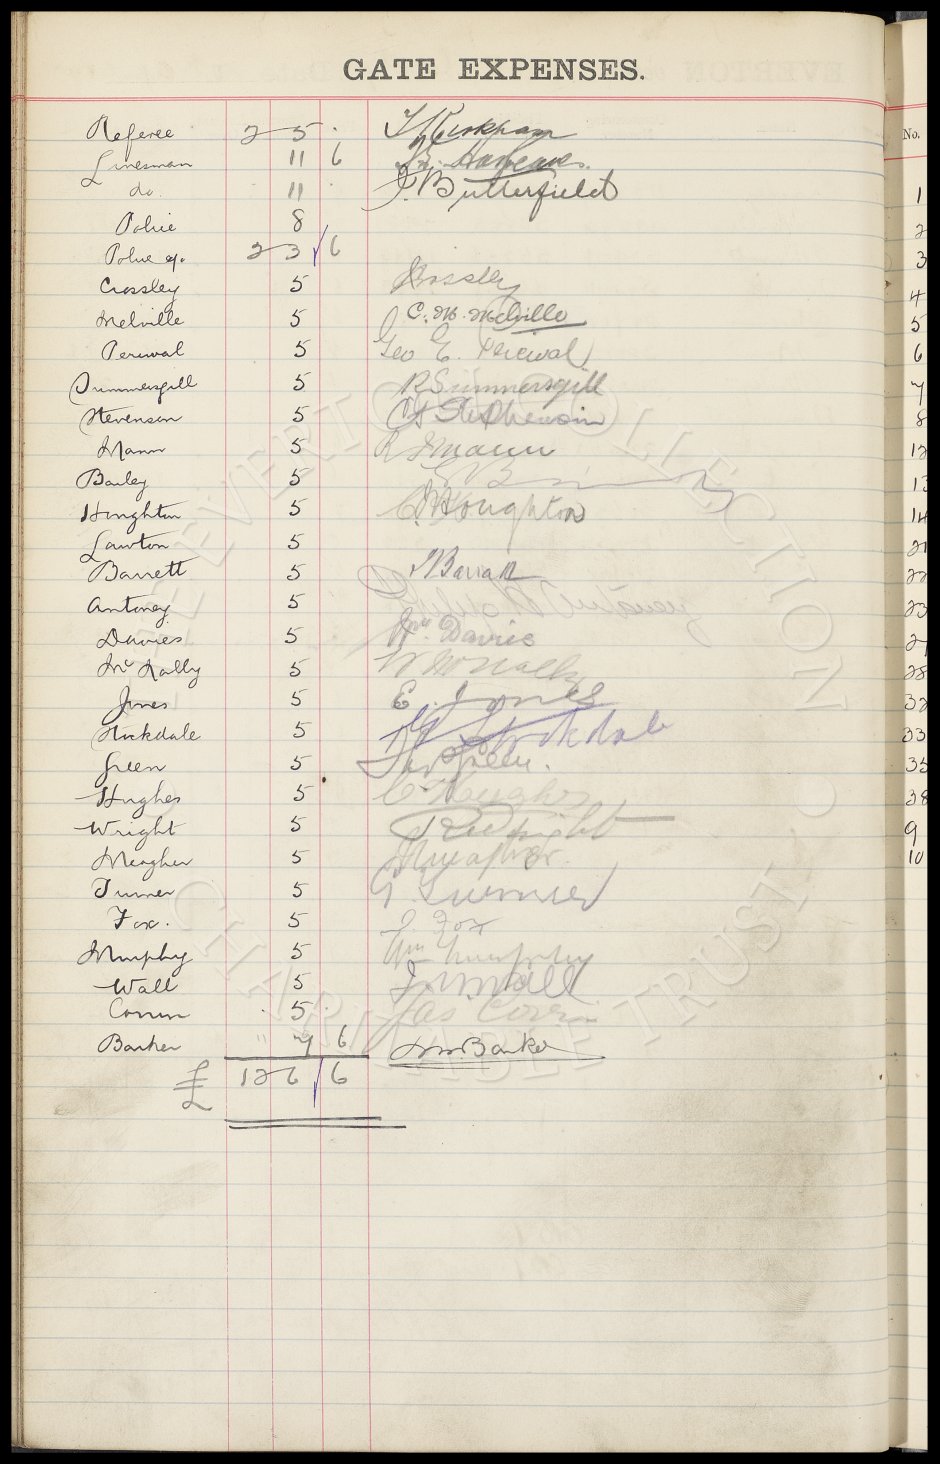 GATE EXPENSES.
Referee 2 5 . T Kirkham
Linesman 11 6
do 11 . F. Butterfield
Police 8
Police ex. 2 3 6
Crossley 5 Crossley
Melville 5 C. M. Melville
Percival 5 Geo E. Percival
Summersgill 5 R Summersgill
Stevenson 5 Stephenson
Mann 5 R Mann
Bailey 5
Houghton 5 Houghton
Lawton 5
Barrett 5 Barratt
Antoney 5 Antoney
Davies 5 Wm. Davies
Mc Nally 5 W McNally
Jones 5 E. Jones
Stockdale 5 Stockdale
Green 5 Green.
Hughes 5 C Hughes
Wright 5 Wright
Meagher 5 Meagher.
Turner 5 Turner
Fox. 5 J Fox
Murphy 5 Wm Murphy
Wall 5 Wall
Corrin 5 Jas Corrin
Barker 7 6 Wm Barker
£ 12 6 6
No.
1
2
3
4
5
6
7
8
12
13
14
21
22
23
28
32
33
35
38
9
10
THE EVERTON COLLECTION CHARITABLE TRUST